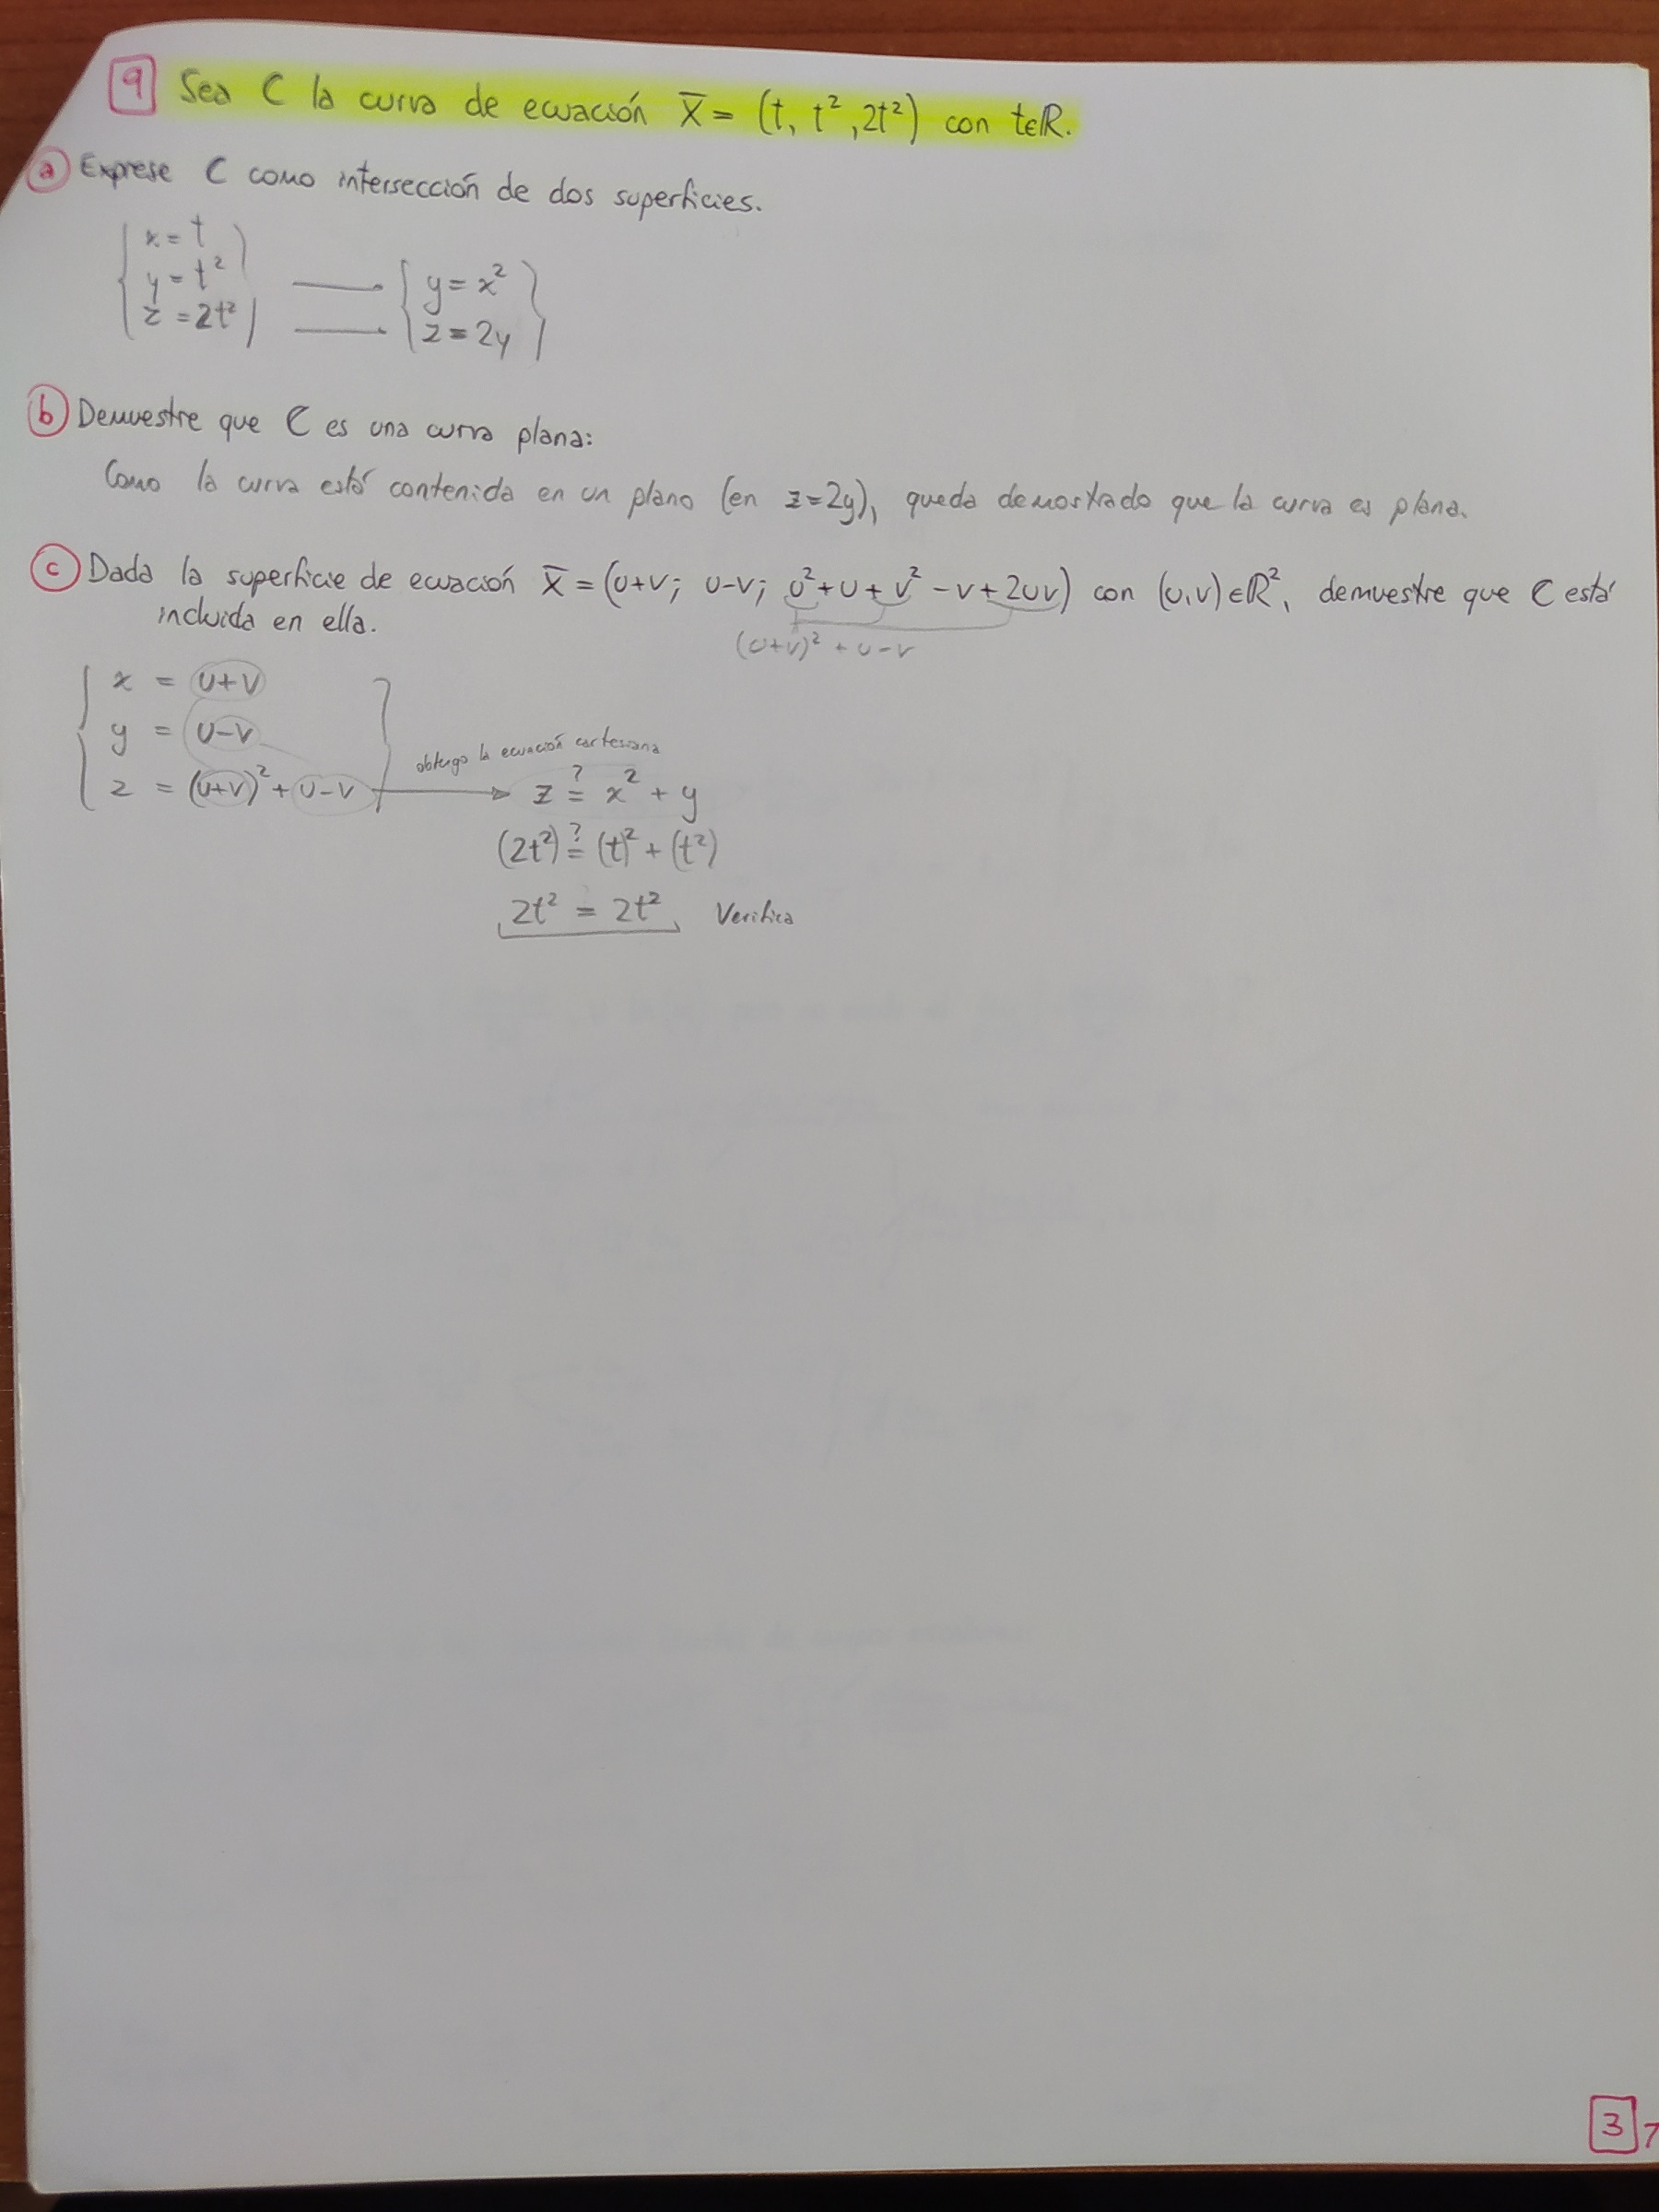 9 Sea C la curva de ecuación X̄ = (t, t², 2t²) con t∈ℝ.
a Exprese C como intersección de dos superficies.
x = t
y = t²
z = 2t²
y = x²
z = 2y
b Demuestre que C es una curva plana:
Como la curva está contenida en un plano (en z=2y), queda demostrado que la curva es plana.
c Dada la superficie de ecuación X̄ = (u+v; u-v; u²+u+v²-v+2uv) con (u,v)∈ℝ², demuestre que C está
incluida en ella.
(u+v)² + u-v
x = u+v
y = u-v
z = (u+v)² + u-v
obtengo la ecuación cartesiana
z ≟ x² + y
(2t²) ≟ (t)² + (t²)
2t² = 2t² Verifica
3